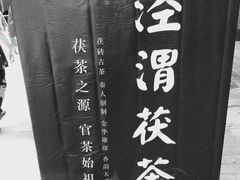 泾渭茯茶
茯砖古茶 秦人创制 金华璀璨 香韵天
茯茶之源 官茶始祖